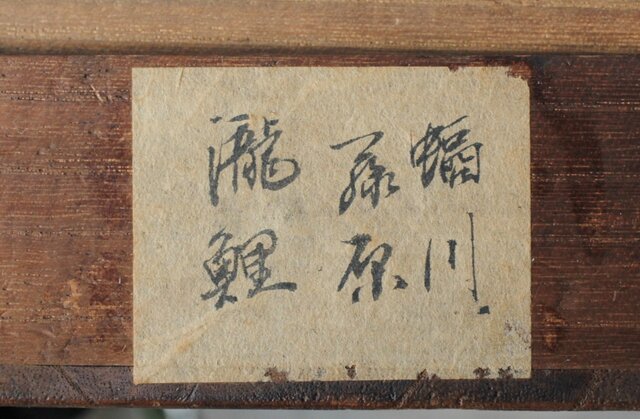 蝠川
藤原
瀧鯉